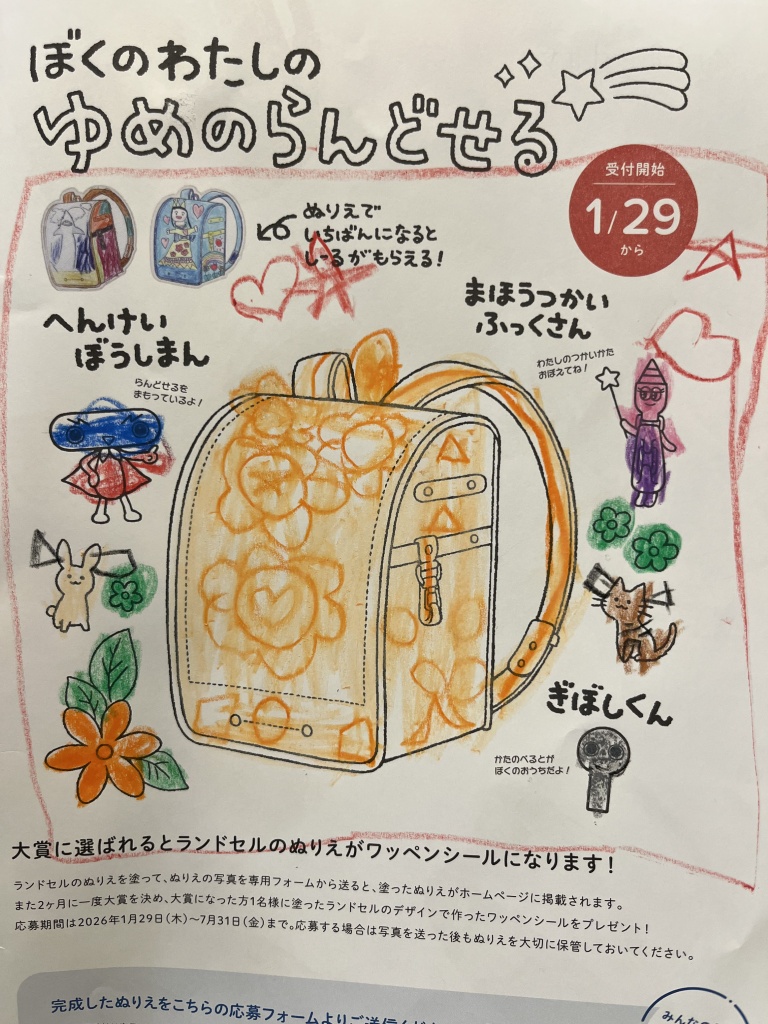 ぼくのわたしの
ゆめのらんどせる
受付開始
1/29
から
ぬりえで
いちばんになると
しーるがもらえる!
へんけい
ぼうしまん
らんどせるを
まもっているよ!
まほうつかい
ふっくさん
わたしのつかいかた
おぼえてね!
ぎぼしくん
かたのべるとが
ぼくのおうちだよ!
大賞に選ばれるとランドセルのぬりえがワッペンシールになります!
ランドセルのぬりえを塗って、ぬりえの写真を専用フォームから送ると、塗ったぬりえがホームページに掲載されます。
また2ヶ月に一度大賞を決め、大賞になった方1名様に塗ったランドセルのデザインで作ったワッペンシールをプレゼント!
応募期間は2026年1月29日(木)〜7月31日(金)まで。応募する場合は写真を送った後もぬりえを大切に保管しておいてください。
完成したぬりえをこちらの応募フォームより
みんなの